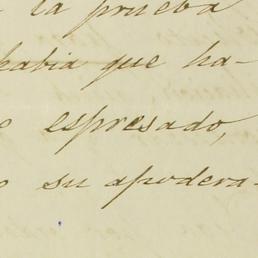 la prueba
habia que ha-
espresado,
su apodera-